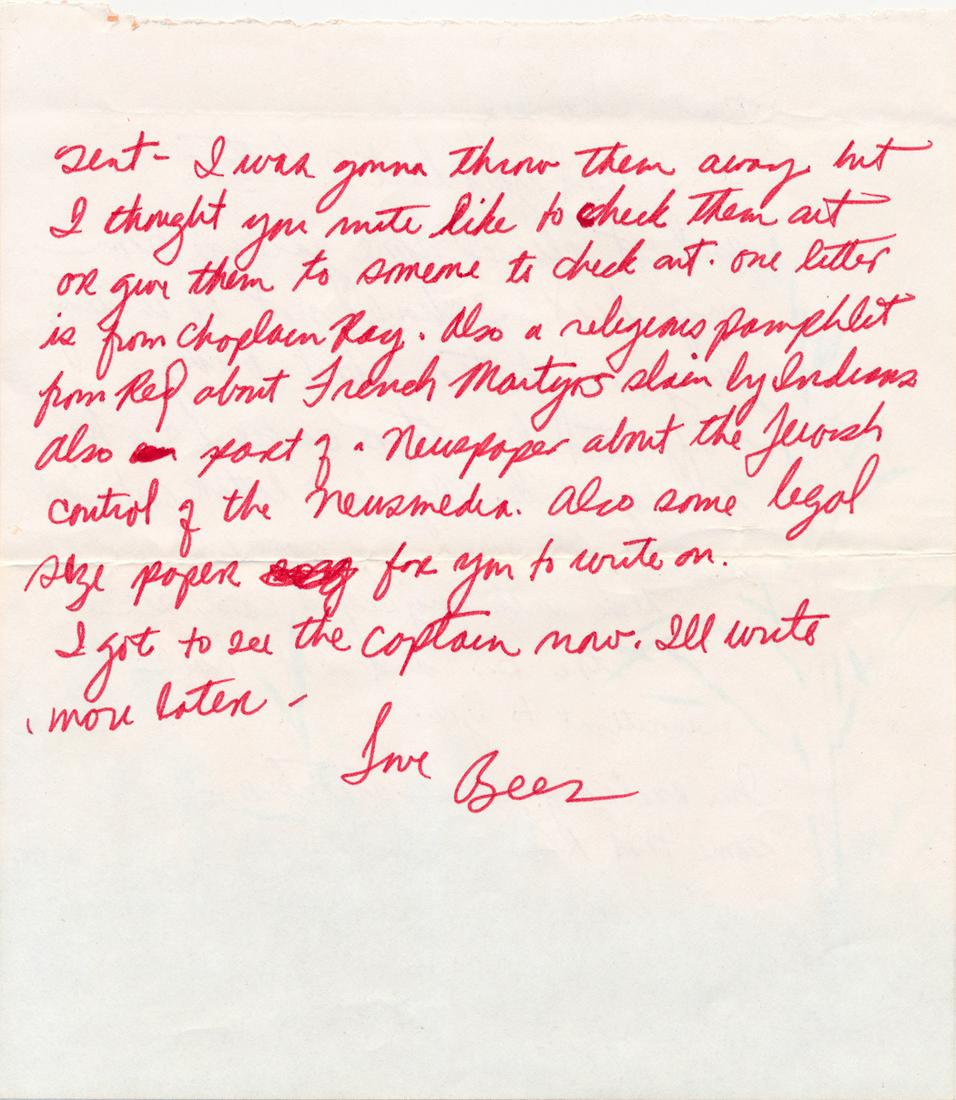 sent - I was gonna throw them away but
I thought you mite like to check them out
or give them to someone to check out. one letter
is from Chaplain Ray. Also a religious pamphlet
from Red about French Martyrs slain by Indians
Also part of a Newspaper about the Jewish
control of the Newsmedia. Also some legal
size paper for you to write on.
I got to see the captain now. Ill write
more later -
Love